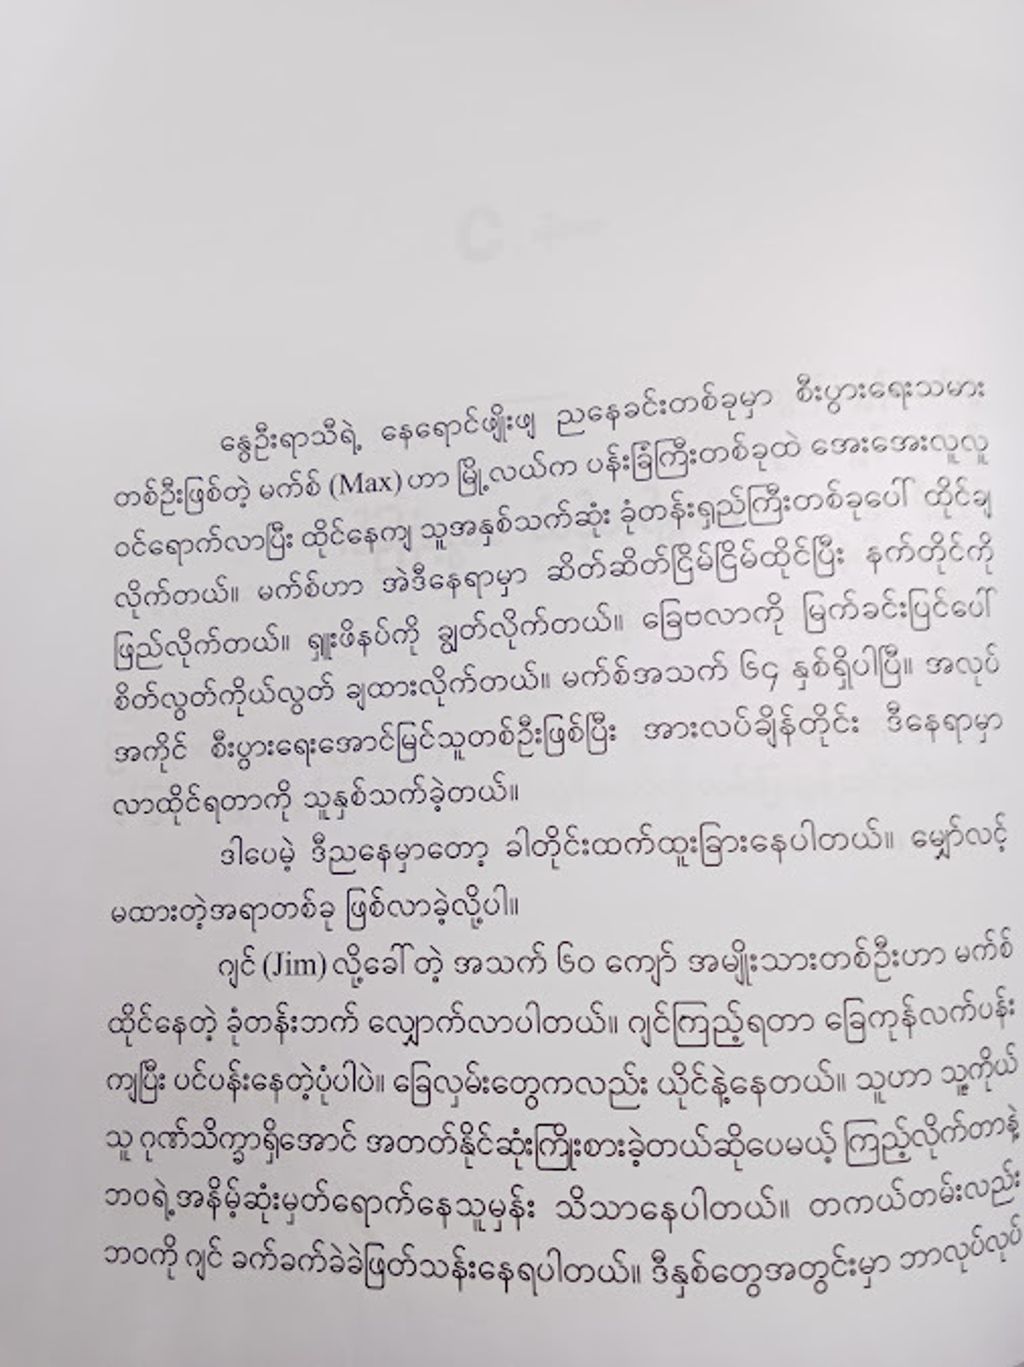 နွေဦးရာသီရဲ့ နေရောင်ဖျိုးဖျ ညနေခင်းတစ်ခုမှာ စီးပွားရေးသမား
တစ်ဦးဖြစ်တဲ့ မက်စ် (Max) ဟာ မြို့လယ်က ပန်းခြံကြီးတစ်ခုထဲ အေးအေးလူလူ
ဝင်ရောက်လာပြီး ထိုင်နေကျ သူအနှစ်သက်ဆုံး ခုံတန်းရှည်ကြီးတစ်ခုပေါ် ထိုင်ချ
လိုက်တယ်။ မက်စ်ဟာ အဲဒီနေရာမှာ ဆိတ်ဆိတ်ငြိမ်ငြိမ်ထိုင်ပြီး နက်တိုင်ကို
ဖြည်လိုက်တယ်။ ရှူးဖိနပ်ကို ချွတ်လိုက်တယ်။ ခြေဗလာကို မြက်ခင်းပြင်ပေါ်
စိတ်လွတ်ကိုယ်လွတ် ချထားလိုက်တယ်။ မက်စ်အသက် ၆၄ နှစ်ရှိပါပြီ။ အလုပ်
အကိုင် စီးပွားရေးအောင်မြင်သူတစ်ဦးဖြစ်ပြီး အားလပ်ချိန်တိုင်း ဒီနေရာမှာ
လာထိုင်ရတာကို သူနှစ်သက်ခဲ့တယ်။
ဒါပေမဲ့ ဒီညနေမှာတော့ ခါတိုင်းထက်ထူးခြားနေပါတယ်။ မျှော်လင့်
မထားတဲ့အရာတစ်ခု ဖြစ်လာခဲ့လို့ပါ။
ဂျင် (Jim) လို့ခေါ်တဲ့ အသက် ၆၀ ကျော် အမျိုးသားတစ်ဦးဟာ မက်စ်
ထိုင်နေတဲ့ ခုံတန်းဘက် လျှောက်လာပါတယ်။ ဂျင်ကြည့်ရတာ ခြေကုန်လက်ပန်း
ကျပြီး ပင်ပန်းနေတဲ့ပုံပါပဲ။ ခြေလှမ်းတွေကလည်း ယိုင်နဲ့နေတယ်။ သူဟာ သူ့ကိုယ်
သူ ဂုဏ်သိက္ခာရှိအောင် အတတ်နိုင်ဆုံးကြိုးစားခဲ့တယ်ဆိုပေမယ့် ကြည့်လိုက်တာနဲ့
ဘဝရဲ့အနိမ့်ဆုံးမှတ်ရောက်နေသူမှန်း သိသာနေပါတယ်။ တကယ်တမ်းလည်း
ဘဝကို ဂျင် ခက်ခက်ခဲခဲဖြတ်သန်းနေရပါတယ်။ ဒီနှစ်တွေအတွင်းမှာ ဘာလုပ်လုပ်